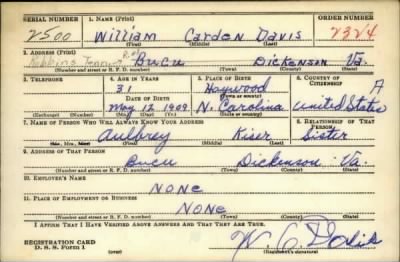 SERIAL NUMBER 1. NAME (Print) ORDER NUMBER
2500 William Carden Davis 2324
(First) (Middle) (Last)
2. ADDRESS (Print)
Bucu Dickenson Va.
(Number and street or R. F. D. number) (Town) (County) (State)
3. TELEPHONE 4. AGE IN YEARS 5. PLACE OF BIRTH 6. COUNTRY OF CITIZENSHIP
31 Haywood A
DATE OF BIRTH (Town or county)
May 12 1909 N. Carolina United States
(Exchange) (Number) (Mo.) (Day) (Yr.) (State or country)
7. NAME OF PERSON WHO WILL ALWAYS KNOW YOUR ADDRESS 8. RELATIONSHIP OF THAT PERSON
Aulbrey Kiser Sister
(Mr., Mrs., Miss) (First) (Middle) (Last)
9. ADDRESS OF THAT PERSON
Bucu Dickinson Va.
(Number and street or R. F. D. number) (Town) (County) (State)
10. EMPLOYER'S NAME
NONE
11. PLACE OF EMPLOYMENT OR BUSINESS
NONE
(Number and street or R. F. D. number) (Town) (County) (State)
I AFFIRM THAT I HAVE VERIFIED ABOVE ANSWERS AND THAT THEY ARE TRUE.
REGISTRATION CARD
D. S. S. Form 1 W. C. Davis
(Registrant's signature)